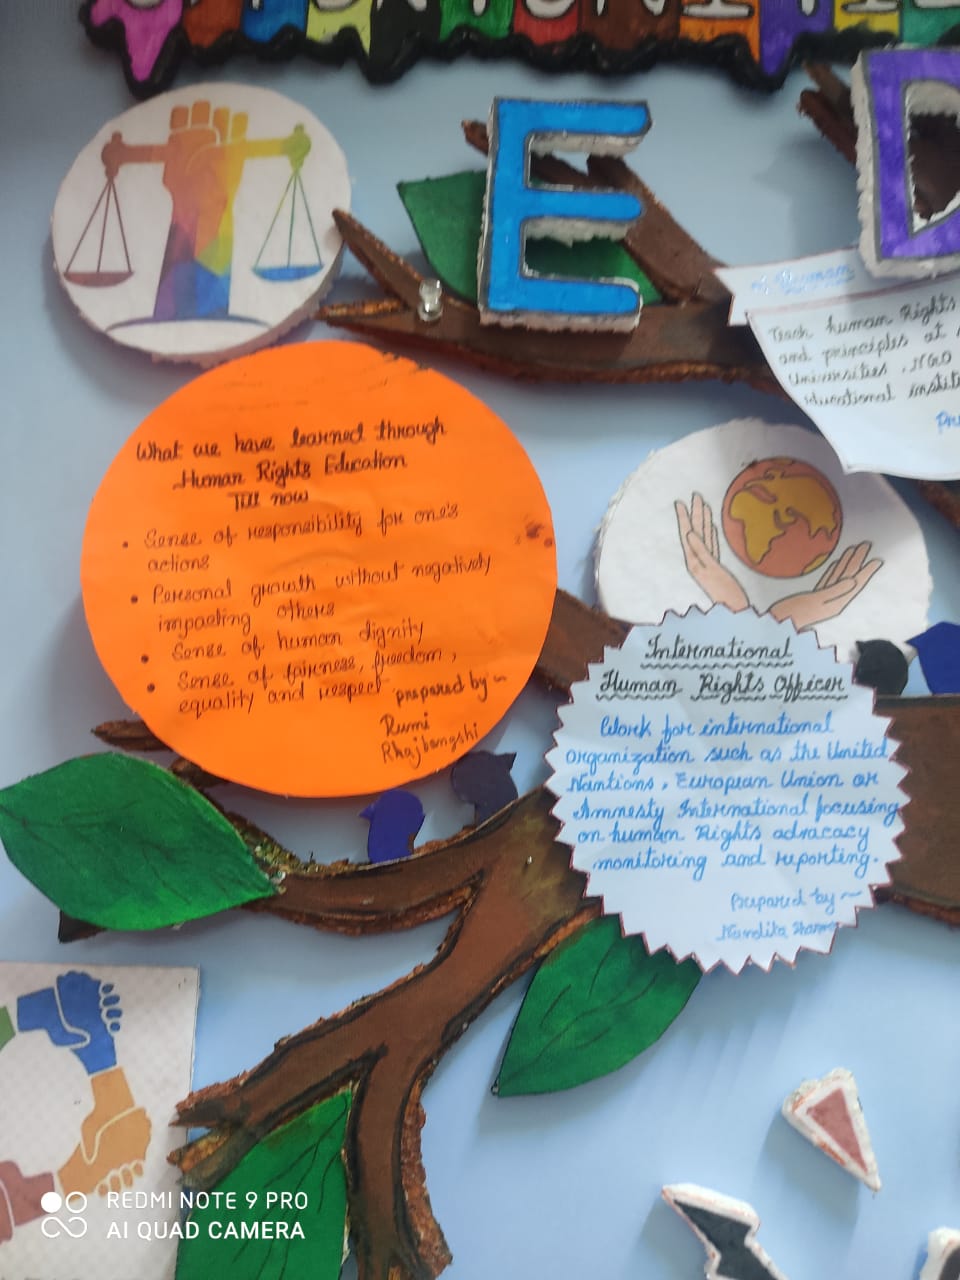 E
D
Human
Teach human Rights
and principles at
Universities, NGO
educational instit
What we have learned through
Human Rights Education
Till now
• Sense of responsibility for one's
actions
• Personal growth without negatively
impacting others
• Sense of human dignity
• Sense of fairness, freedom,
equality and respect
prepared by ~
Rumi
Rhajbongshi
International
Human Rights Officer
Work for international
organization such as the United
Nantions, European Union or
Amnesty International focusing
on human Rights advacacy
monitoring and reporting.
Prepared by ~
Nandita Sharma
REDMI NOTE 9 PRO
AI QUAD CAMERA